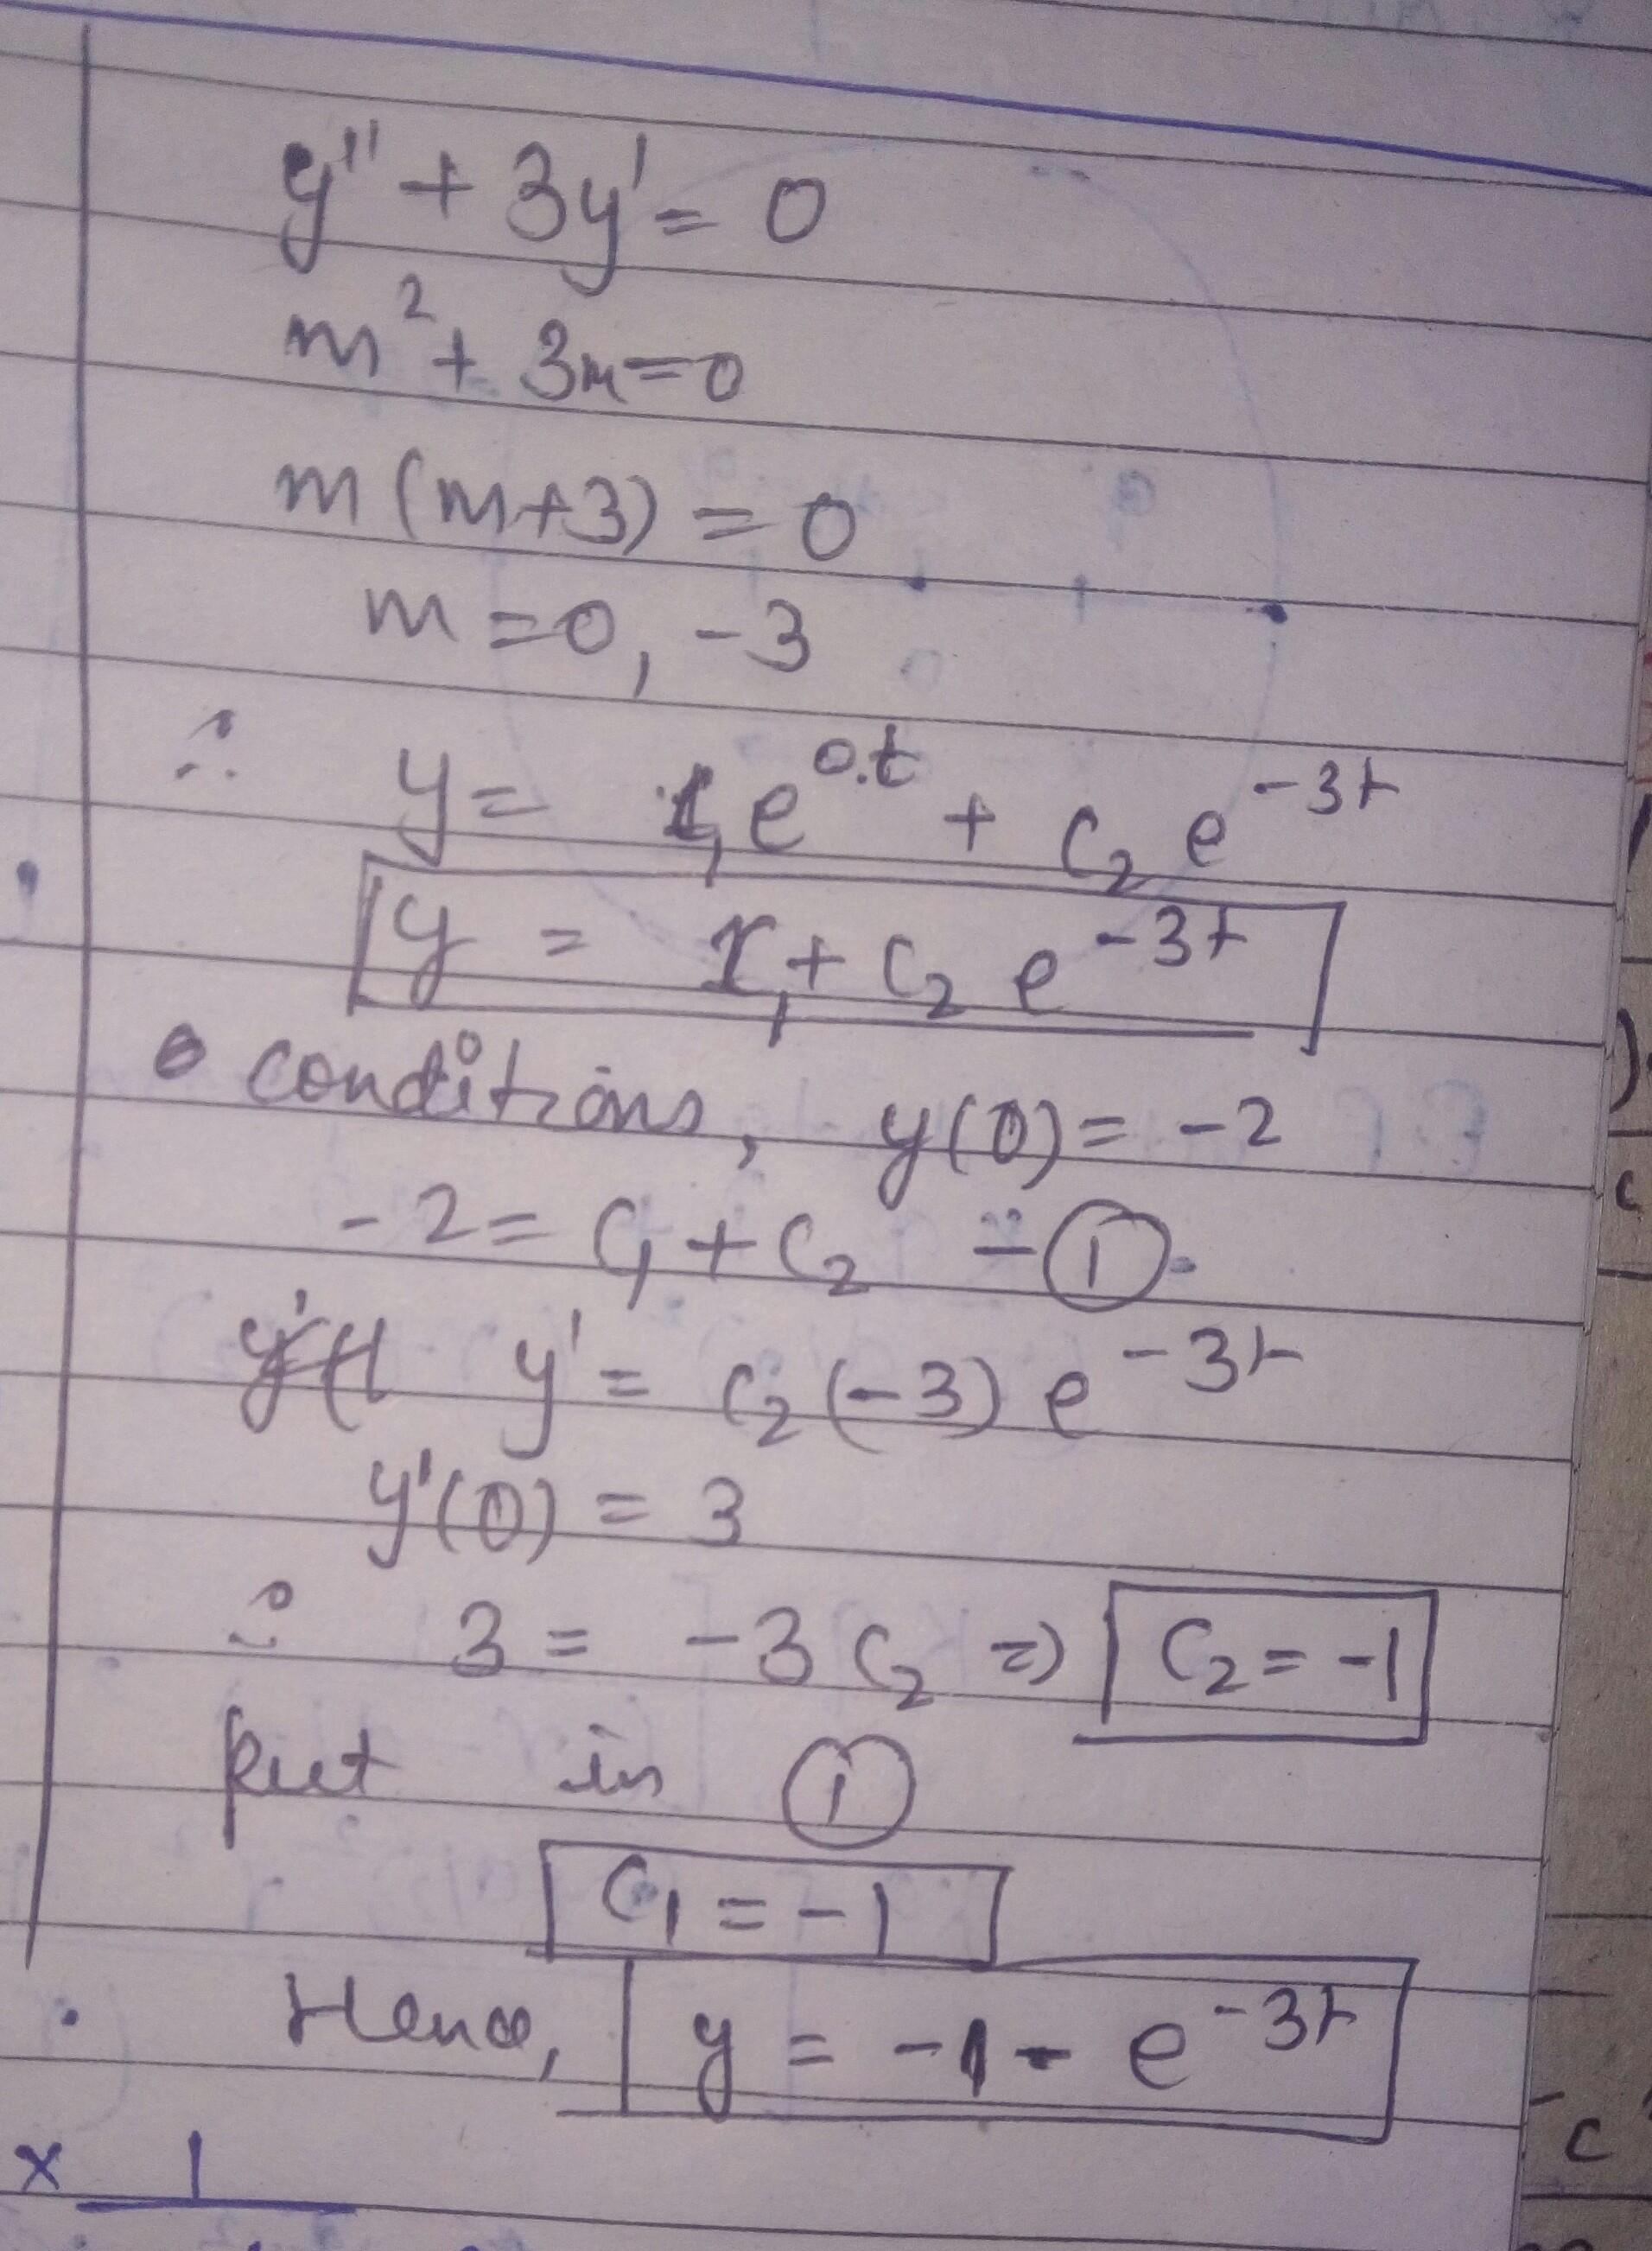 y'' + 3y' = 0
m² + 3m = 0
m (m+3) = 0
m = 0, -3
∴ y = c₁e^{0.t} + c₂ e^{-3t}
y = c₁ + c₂ e^{-3t}
conditions, y(0) = -2
-2 = c₁ + c₂ - ①
y' = c₂(-3) e^{-3t}
y'(0) = 3
∴ 3 = -3 c₂ ⇒ c₂ = -1
put in ①
c₁ = -1
Hence, y = -1 - e^{-3t}
x 1